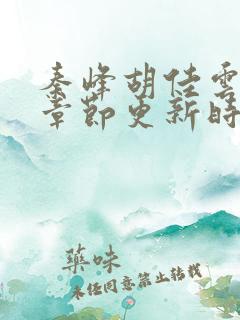 秦峰胡佳雲
章節更新時
藥味
未经同意禁止转载